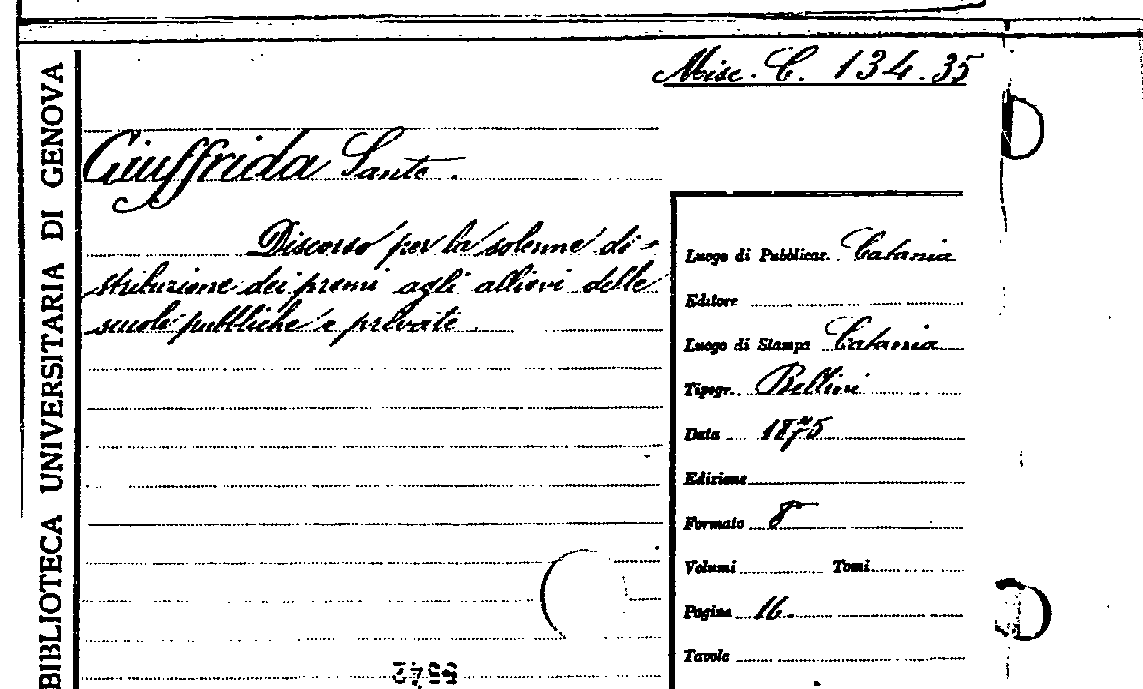 Misc. C. 134.35
BIBLIOTECA UNIVERSITARIA DI GENOVA
Giuffrida Sante.
Discorso per la solenne di-
stribuzione dei premi agli allievi delle
scuole pubbliche e private.
Luogo di Pubblicaz. Catania
Editore
Luogo di Stampa Catania
Tipogr. Bellini
Data 1875
Edizione
Formato 8°
Volumi Tomi
Pagine 16.
Tavole